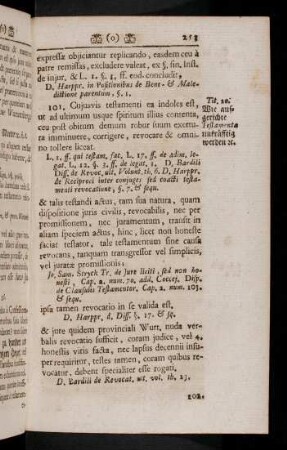 (o) 213
expressæ objiciuntur replicando, easdem ceu à
patre remissas, excludere valeat, ex §. fin. Inst.
de injur. & L. 1. §. ff. eod. concludit.
D. Harppr. in Positionibus de Bene- & Male-
dictione parentum, §. 1.
101. Cujusvis testamenti ea indoles est,
ut ad ultimum usque spiritum illius contenta,
ceu post obitum demum robur suum exerentia
imminuere, corrigere, revocare & omni-
no tollere liceat.
Tit. 20.
Wie auf-
gerichte
Testamenta
unkräfftig
werden ꝛc.
L. 1. ff. qui testam. fac. L. 17. ff. de adim. le-
gat. L. 22. §. 3. ff. de legat. 1. D. Bardili
Diss. de Revoc. ult. Volunt. th. 6. D. Harppr.
de Reciproci inter conjuges sed exacti testa-
menti revocatione, §. 7. & seqq.
& talis testandi actus, tam sua natura, quam
dispositione juris civilis, revocabilis, nec per
promissionem, nec juramentum, transit in
aliam speciem actus, hinc, licet non honeste
faciat testator, tale testamentum sine causa
revocans, nunquam transgressor vel simplicis
vel juratæ promissionis:
Jr. Sam. Stryck Tr. de Jure liciti, sed non ho-
nesti, Cap. 2. num. 70. add. Coccej. Disp.
de Clausulis Testamentor. Cap. 2. num. 103.
& seqq.
ipsa tamen revocatio in se valida est,
D. Harppr. d. Diss. §. 17. & sq.
& jure quidem provinciali Wurt. nuda ver-
balis revocatio sufficit, coram judice, vel 4.
honestis vitis facta, nec lapsus decennii insu-
per requiritur, testes tamen, coram quibus re-
vocatur, debent specialiter esse rogati.
D. Bardili de Revocat. ut. vol. th. 23.
102.